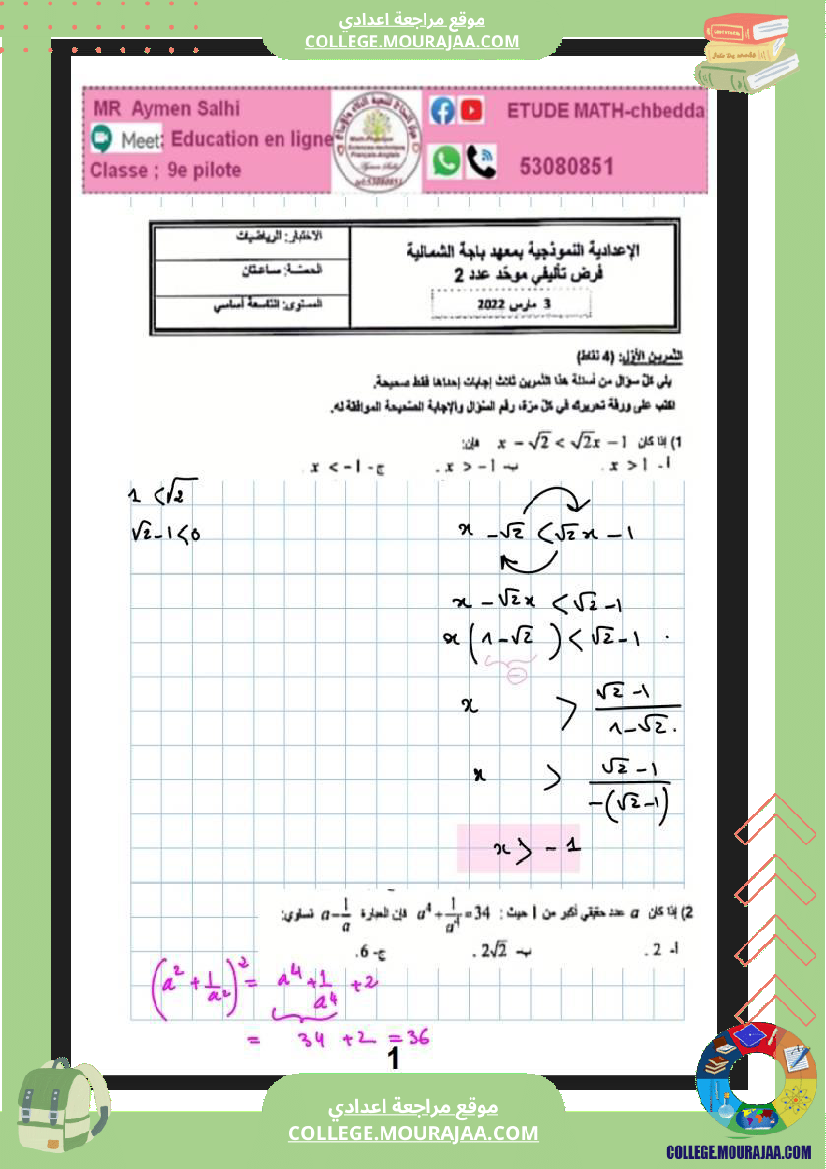 موقع مراجعة اعدادي
COLLEGE.MOURAJAA.COM
MR Aymen Salhi
Meet: Education en ligne
Classe ; 9e pilote
ETUDE MATH-chbedda
53080851
الإعدادية النموذجية بمعهد باجة الشمالية
فرض تأليفي موحّد عدد 2
3 مارس 2022
الاختبار: الرياضيات
الحصّة: ساعتان
المستوى: التاسعة أساسي
التمرين الأوّل: (4 نقاط)
يلي كلّ سؤال من أسئلة هذا التمرين ثلاث إجابات إحداها فقط صحيحة.
اكتب على ورقة تحريرك في كلّ مرّة، رقم السّؤال والإجابة الصّحيحة الموافقة له.
1) إذا كان x − √2 < √2x − 1 فإن:
أ- x > 1 . ب- x > −1 . ج- x < −1 .
1 < √2
√2 − 1 < 0
x − √2 < √2 x − 1
x − √2 x < √2 − 1
x ( 1 − √2 ) < √2 − 1 .
−
x > √2 − 1 / 1 − √2 .
x > √2 − 1 / −(√2 − 1)
x > − 1
2) إذا كان a عدد حقيقي أكبر من 1 حيث : a⁴ + 1/a⁴ = 34 فإن العبارة a − 1/a تساوي:
أ- 2 . ب- 2√2 . ج- 6 .
(a² + 1/a²)² = a⁴ + 1/a⁴ + 2
= 34 + 2 = 36
1
موقع مراجعة اعدادي
COLLEGE.MOURAJAA.COM
COLLEGE.MOURAJAA.COM